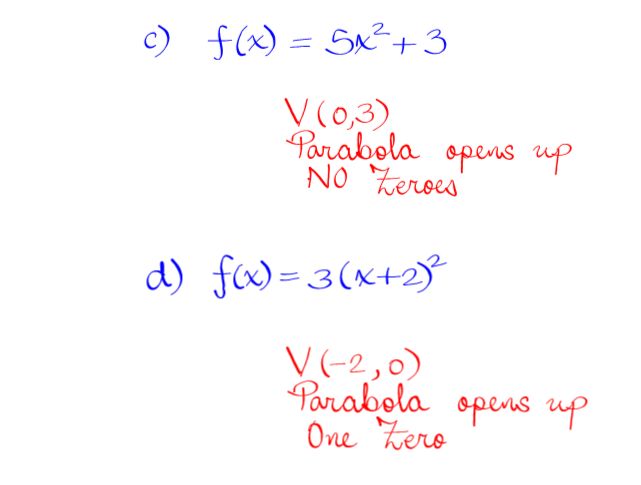 c) f(x) = 5x² + 3
V(0,3)
Parabola opens up
NO Zeroes
d) f(x) = 3(x+2)²
V(-2,0)
Parabola opens up
One Zero